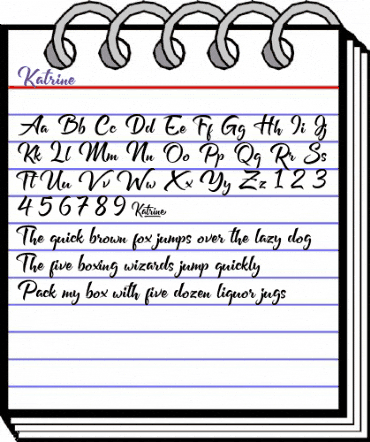 Katrine
Aa Bb Cc Dd Ee Ff Gg Hh Ii Jj
Kk Ll Mm Nn Oo Pp Qq Rr Ss
Tt Uu Vv Ww Xx Yy Zz 1 2 3
4 5 6 7 8 9 Katrine
The quick brown fox jumps over the lazy dog
The five boxing wizards jump quickly
Pack my box with five dozen liquor jugs